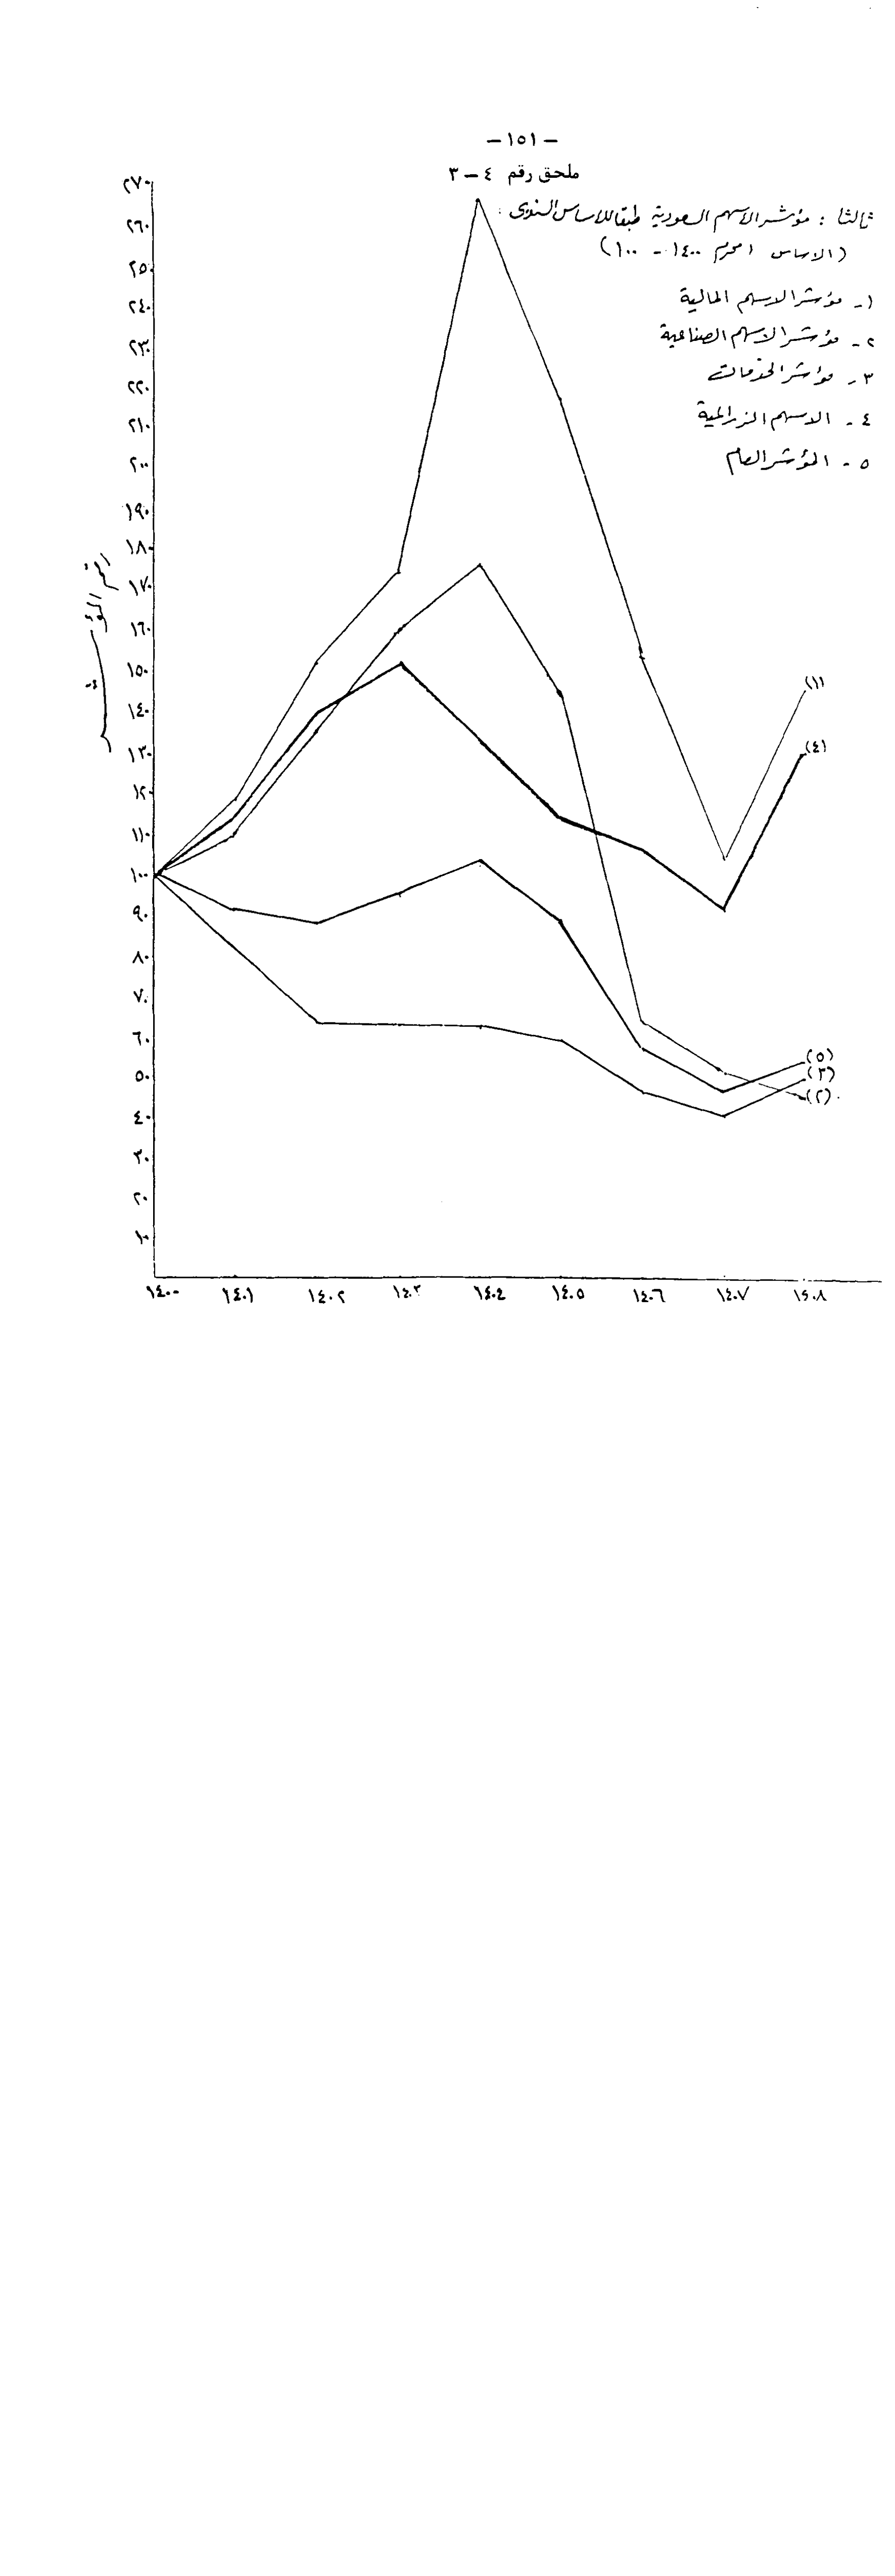 - ١٥١ -
ملحق رقم ٤ - ٣
ثالثا : مؤشر الاسهم السعودية طبقا للاساس السنوى :
(الاساس ١ محرم ١٤٠٠ - ١٠٠)
١- مؤشر الاسهم المالية
٢- مؤشر الاسهم الصناعية
٣- مؤشر الخدمات
٤- الاسهم الزراعية
٥- المؤشر العام
رقم المؤشر
٢٧٠
٢٦٠
٢٥٠
٢٤٠
٢٣٠
٢٢٠
٢١٠
٢٠٠
١٩٠
١٨٠
١٧٠
١٦٠
١٥٠
١٤٠
١٣٠
١٢٠
١١٠
١٠٠
٩٠
٨٠
٧٠
٦٠
٥٠
٤٠
٣٠
٢٠
١٠
(١)
(٤)
(٥)
(٣)
(٢)
١٤٠٠ ١٤٠١ ١٤٠٢ ١٤٠٣ ١٤٠٤ ١٤٠٥ ١٤٠٦ ١٤٠٧ ١٤٠٨